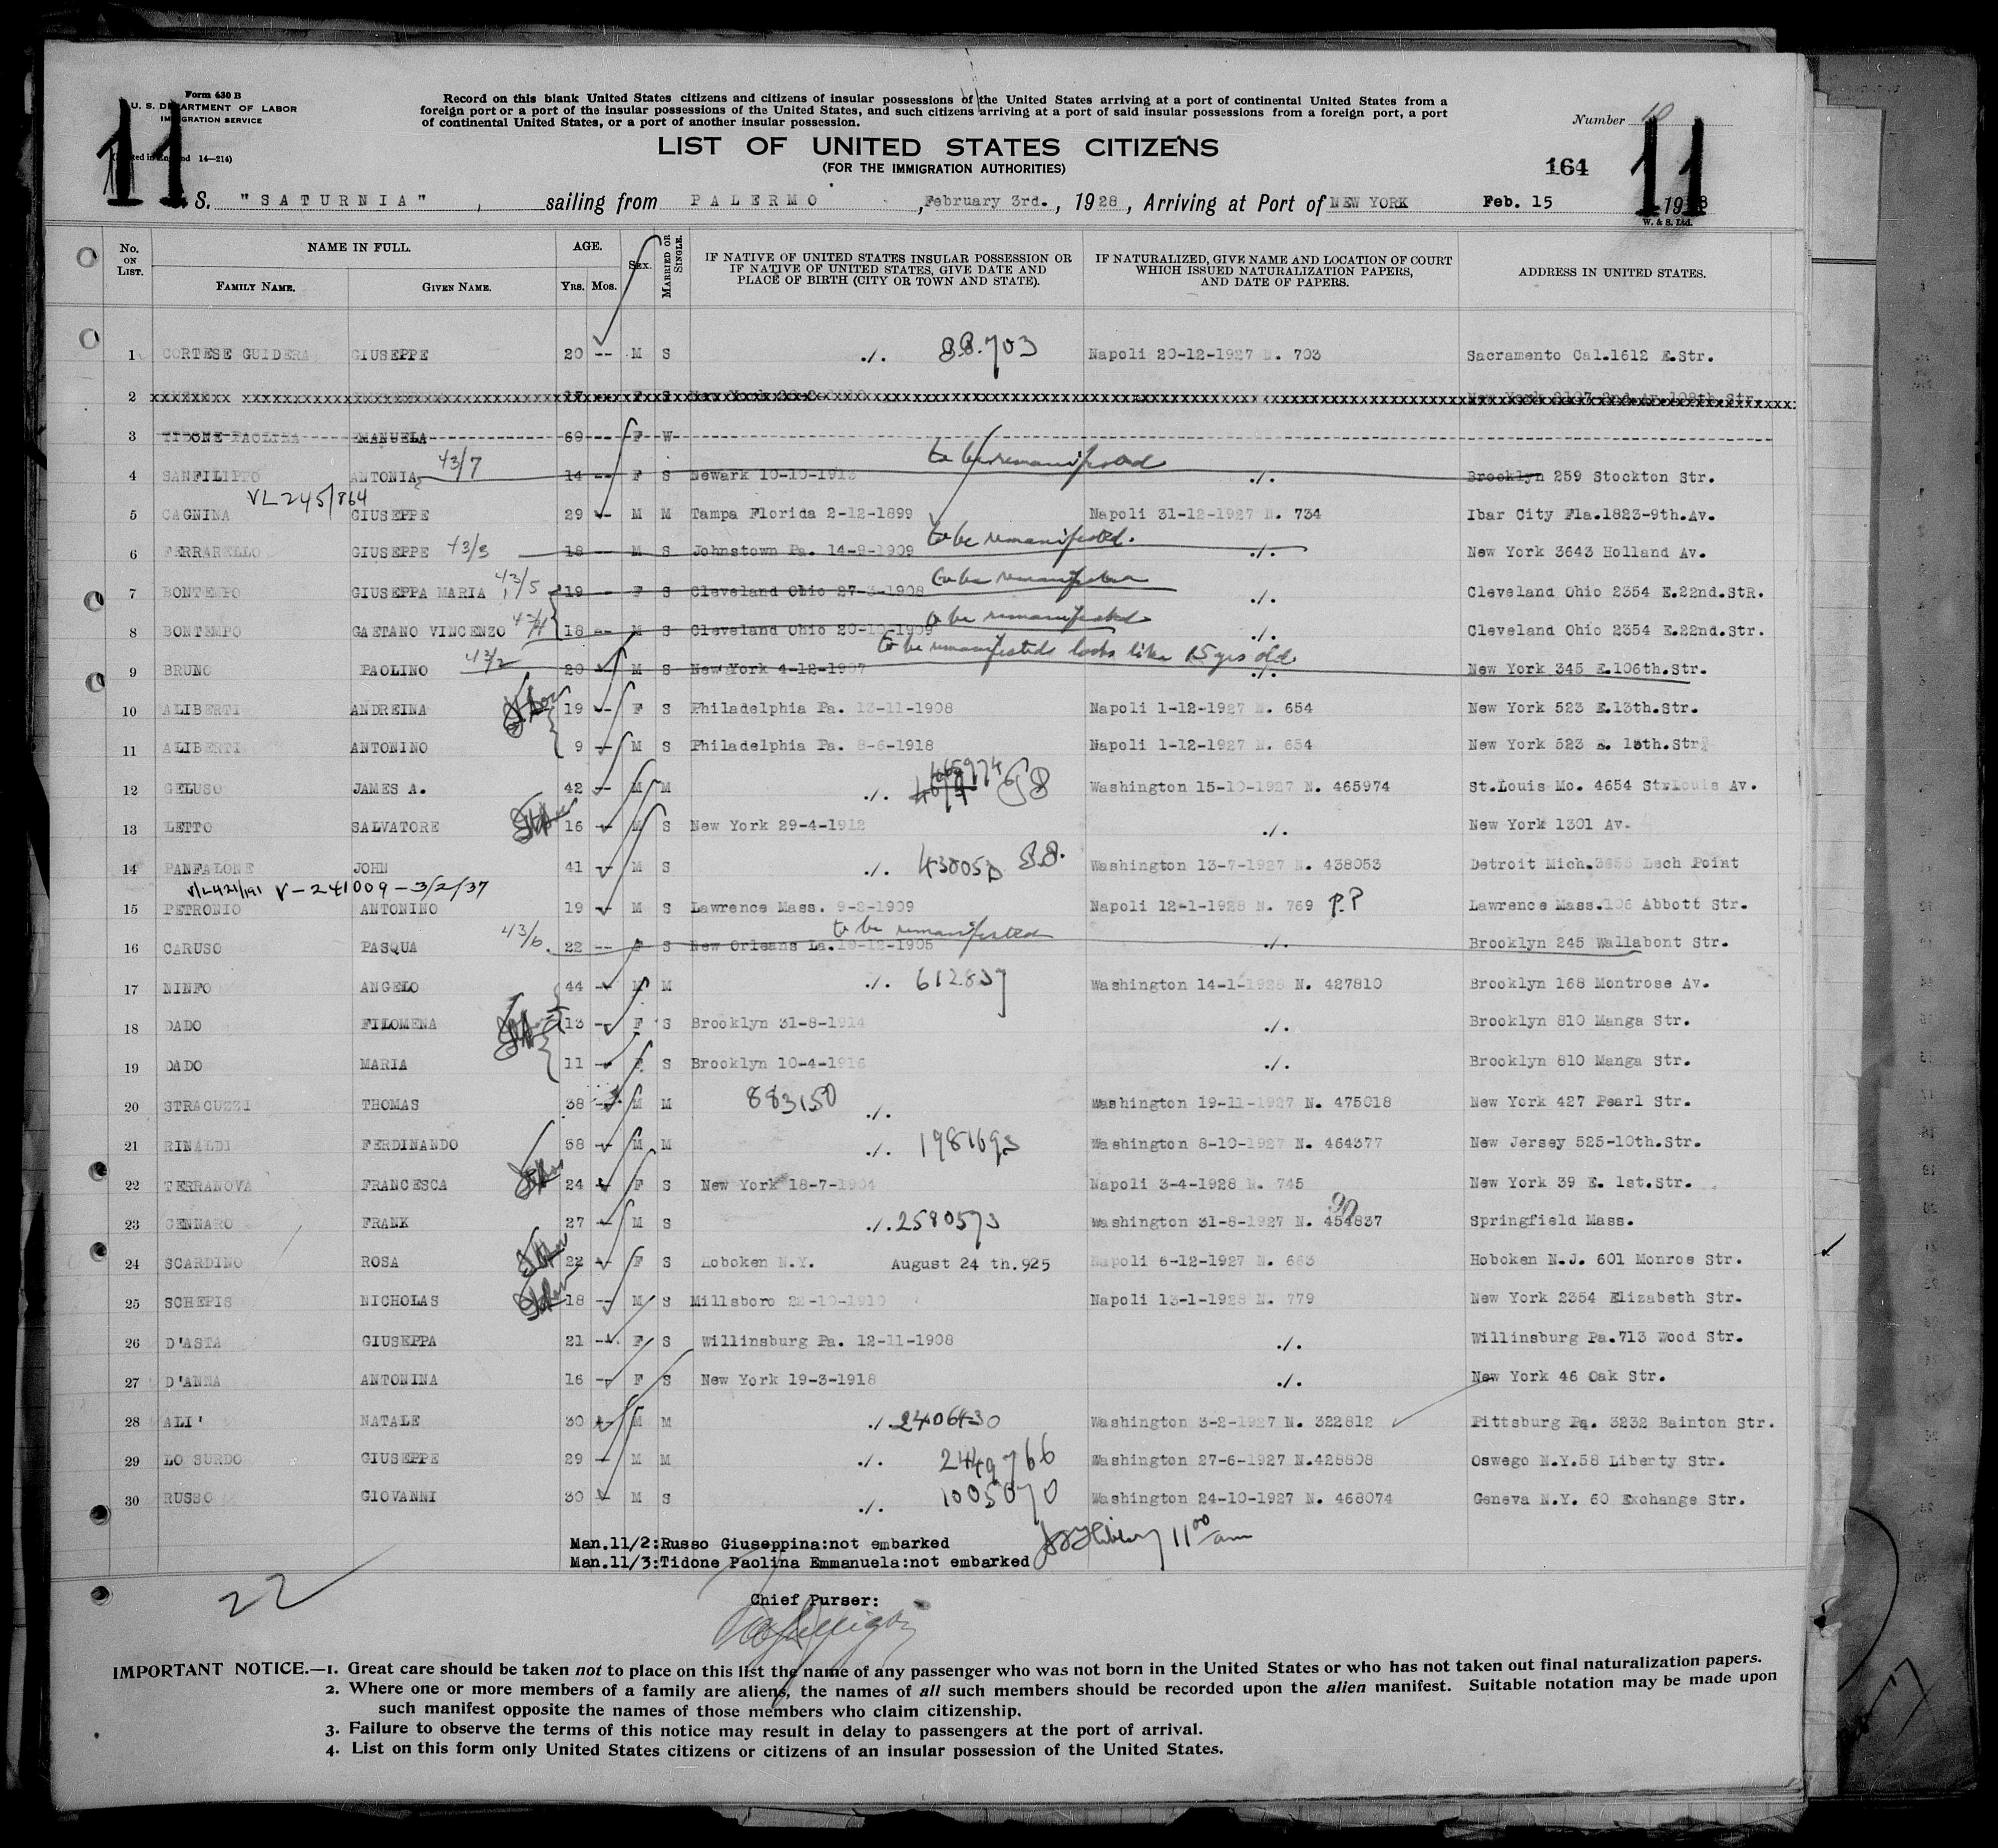 Form 630 B
U. S. DEPARTMENT OF LABOR
IMMIGRATION SERVICE
11
Record on this blank United States citizens and citizens of insular possessions of the United States arriving at a port of continental United States from a
foreign port or a port of the insular possessions of the United States, and such citizens arriving at a port of said insular possessions from a foreign port, a port
of continental United States, or a port of another insular possession.
Number 10
LIST OF UNITED STATES CITIZENS
(FOR THE IMMIGRATION AUTHORITIES)
164
11
S. "SATURNIA", sailing from PALERMO, February 3rd., 1928, Arriving at Port of NEW YORK Feb. 15 1928
W. & S. Ltd.
No. ON LIST. NAME IN FULL. FAMILY NAME. GIVEN NAME. AGE. YRS. MOS. SEX. MARRIED OR SINGLE. IF NATIVE OF UNITED STATES INSULAR POSSESSION OR IF NATIVE OF UNITED STATES, GIVE DATE AND PLACE OF BIRTH (CITY OR TOWN AND STATE). IF NATURALIZED, GIVE NAME AND LOCATION OF COURT WHICH ISSUED NATURALIZATION PAPERS, AND DATE OF PAPERS. ADDRESS IN UNITED STATES.
1 CORTESE GUIDERA GIUSEPPE 20 -- M S ./. 703 Napoli 20-12-1927 N. 703 Sacramento Cal.1612 E.Str.
2 17 -- F S
3 TIDONE PAOLINA EMANUELA 69 -- F W
4 SANFILIPPO ANTONIA 43/7 14 -- F S Newark 10-10-1913 to be remanifested ./. Brooklyn 259 Stockton Str.
VL 245/864
5 CAGNINA GIUSEPPE 29 -- M M Tampa Florida 2-12-1899 Napoli 31-12-1927 N. 734 Ibar City Fla.1823-9th.Av.
6 FERRARELLO GIUSEPPE 43/3 18 -- M S Johnstown Pa. 14-9-1909 to be remanifested. ./. New York 3643 Holland Av.
7 BONTEMPO GIUSEPPA MARIA 43/5 19 -- F S Cleveland Ohio 27-3-1908 to be remanifested ./. Cleveland Ohio 2354 E.22nd.StR.
8 BONTEMPO GAETANO VINCENZO 43/4 18 -- M S Cleveland Ohio 20-10-1909 to be remanifested ./. Cleveland Ohio 2354 E.22nd.Str.
9 BRUNO PAOLINO 43/2 20 -- M S New York 4-12-1907 to be remanifested looks like 15 yrs old ./. New York 345 E.106th.Str.
10 ALIBERTI ANDREINA 19 -- F S Philadelphia Pa. 13-11-1908 Napoli 1-12-1927 N. 654 New York 523 E.13th.Str.
11 ALIBERTI ANTONINO 9 -- M S Philadelphia Pa. 8-6-1918 Napoli 1-12-1927 N. 654 New York 523 E. 13th.Str.
12 GELUSO JAMES A. 42 -- M M ./. 465974 Washington 15-10-1927 N. 465974 St.Louis Mo. 4654 St.Louis Av.
13 LETTO SALVATORE 16 -- M S New York 29-4-1912 ./. New York 1301 Av.
14 PANFALONE JOHN 41 -- M S ./. Washington 13-7-1927 N. 438053 Detroit Mich. Lech Point
V-241009-3/2/37
15 PETRONIO ANTONINO 19 -- M S Lawrence Mass. 9-2-1909 Napoli 12-1-1928 N. 769 P.P Lawrence Mass.106 Abbott Str.
16 CARUSO PASQUA 43/6. 22 -- F S New Orleans La.19-12-1905 to be remanifested ./. Brooklyn 245 Wallabont Str.
17 NINFO ANGELO 44 -- M M ./. 612837 Washington 14-1-1928 N. 427810 Brooklyn 168 Montrose Av.
18 DADO FILOMENA 13 -- F S Brooklyn 31-8-1914 ./. Brooklyn 810 Manga Str.
19 DADO MARIA 11 -- F S Brooklyn 10-4-1916 ./. Brooklyn 810 Manga Str.
20 STRACUZZI THOMAS 38 -- M M 883150 ./. Washington 19-11-1927 N. 475018 New York 427 Pearl Str.
21 RINALDI FERDINANDO 58 -- M M ./. 1981693 Washington 8-10-1927 N. 464377 New Jersey 525-10th.Str.
22 TERRANOVA FRANCESCA 24 -- F S New York 18-7-1904 Napoli 3-4-1928 N. 745 New York 39 E. 1st.Str.
23 GENNARO FRANK 27 -- M S ./. 2580573 Washington 31-8-1927 N. 454837 90 Springfield Mass.
24 SCARDINO ROSA 22 -- F S Hoboken N.Y. August 24 th.925 Napoli 6-12-1927 N. 663 Hoboken N.J. 601 Monroe Str.
25 SCHEPIS NICHOLAS 18 -- M S Millsboro 22-10-1910 Napoli 13-1-1928 N. 779 New York 2354 Elizabeth Str.
26 D'ASTA GIUSEPPA 21 -- F S Willinsburg Pa. 12-11-1908 ./. Willinsburg Pa.713 Wood Str.
27 D'ANNA ANTONINA 16 -- F S New York 19-3-1918 ./. New York 46 Oak Str.
28 ALI' NATALE 30 -- M M ./. 2406430 Washington 3-2-1927 N. 322812 Pittsburg Pa. 3232 Bainton Str.
29 LO SURDO GIUSEPPE 29 -- M M ./. 2449766 Washington 27-6-1927 N.428808 Oswego N.Y.58 Liberty Str.
30 RUSSO GIOVANNI 30 -- M S ./. 1005070 Washington 24-10-1927 N. 468074 Geneva N.Y. 60 Exchange Str.
Man.11/2:Russo Giuseppina:not embarked
Man.11/3:Tidone Paolina Emmanuela:not embarked
11 00 am
22
Chief Purser:
IMPORTANT NOTICE.—1. Great care should be taken not to place on this list the name of any passenger who was not born in the United States or who has not taken out final naturalization papers.
2. Where one or more members of a family are aliens, the names of all such members should be recorded upon the alien manifest. Suitable notation may be made upon
such manifest opposite the names of those members who claim citizenship.
3. Failure to observe the terms of this notice may result in delay to passengers at the port of arrival.
4. List on this form only United States citizens or citizens of an insular possession of the United States.